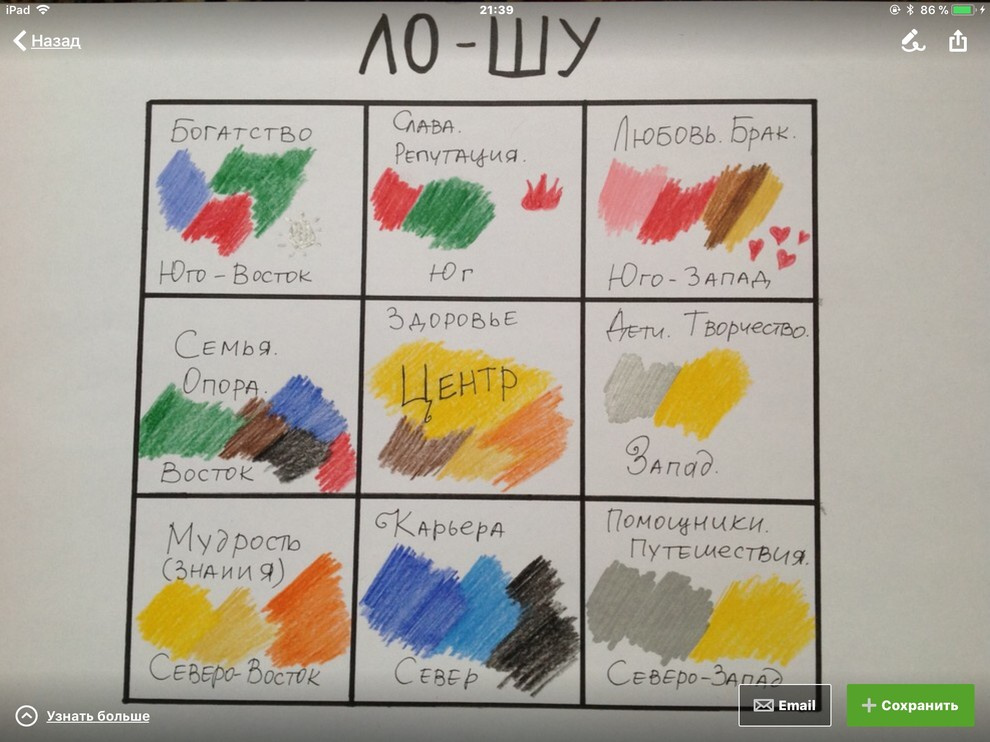 iPad
21:39
86 %
Назад
ЛО-ШУ
Богатство
Юго-Восток
Слава.
Репутация.
Юг
Любовь. Брак.
Юго-Запад
Семья.
Опора.
Восток
Здоровье
Центр
Дети. Творчество.
Запад.
Мудрость
(Знания)
Северо-Восток
Карьера
Север
Помощники.
Путешествия.
Северо-Запад
Узнать больше
Email
Сохранить